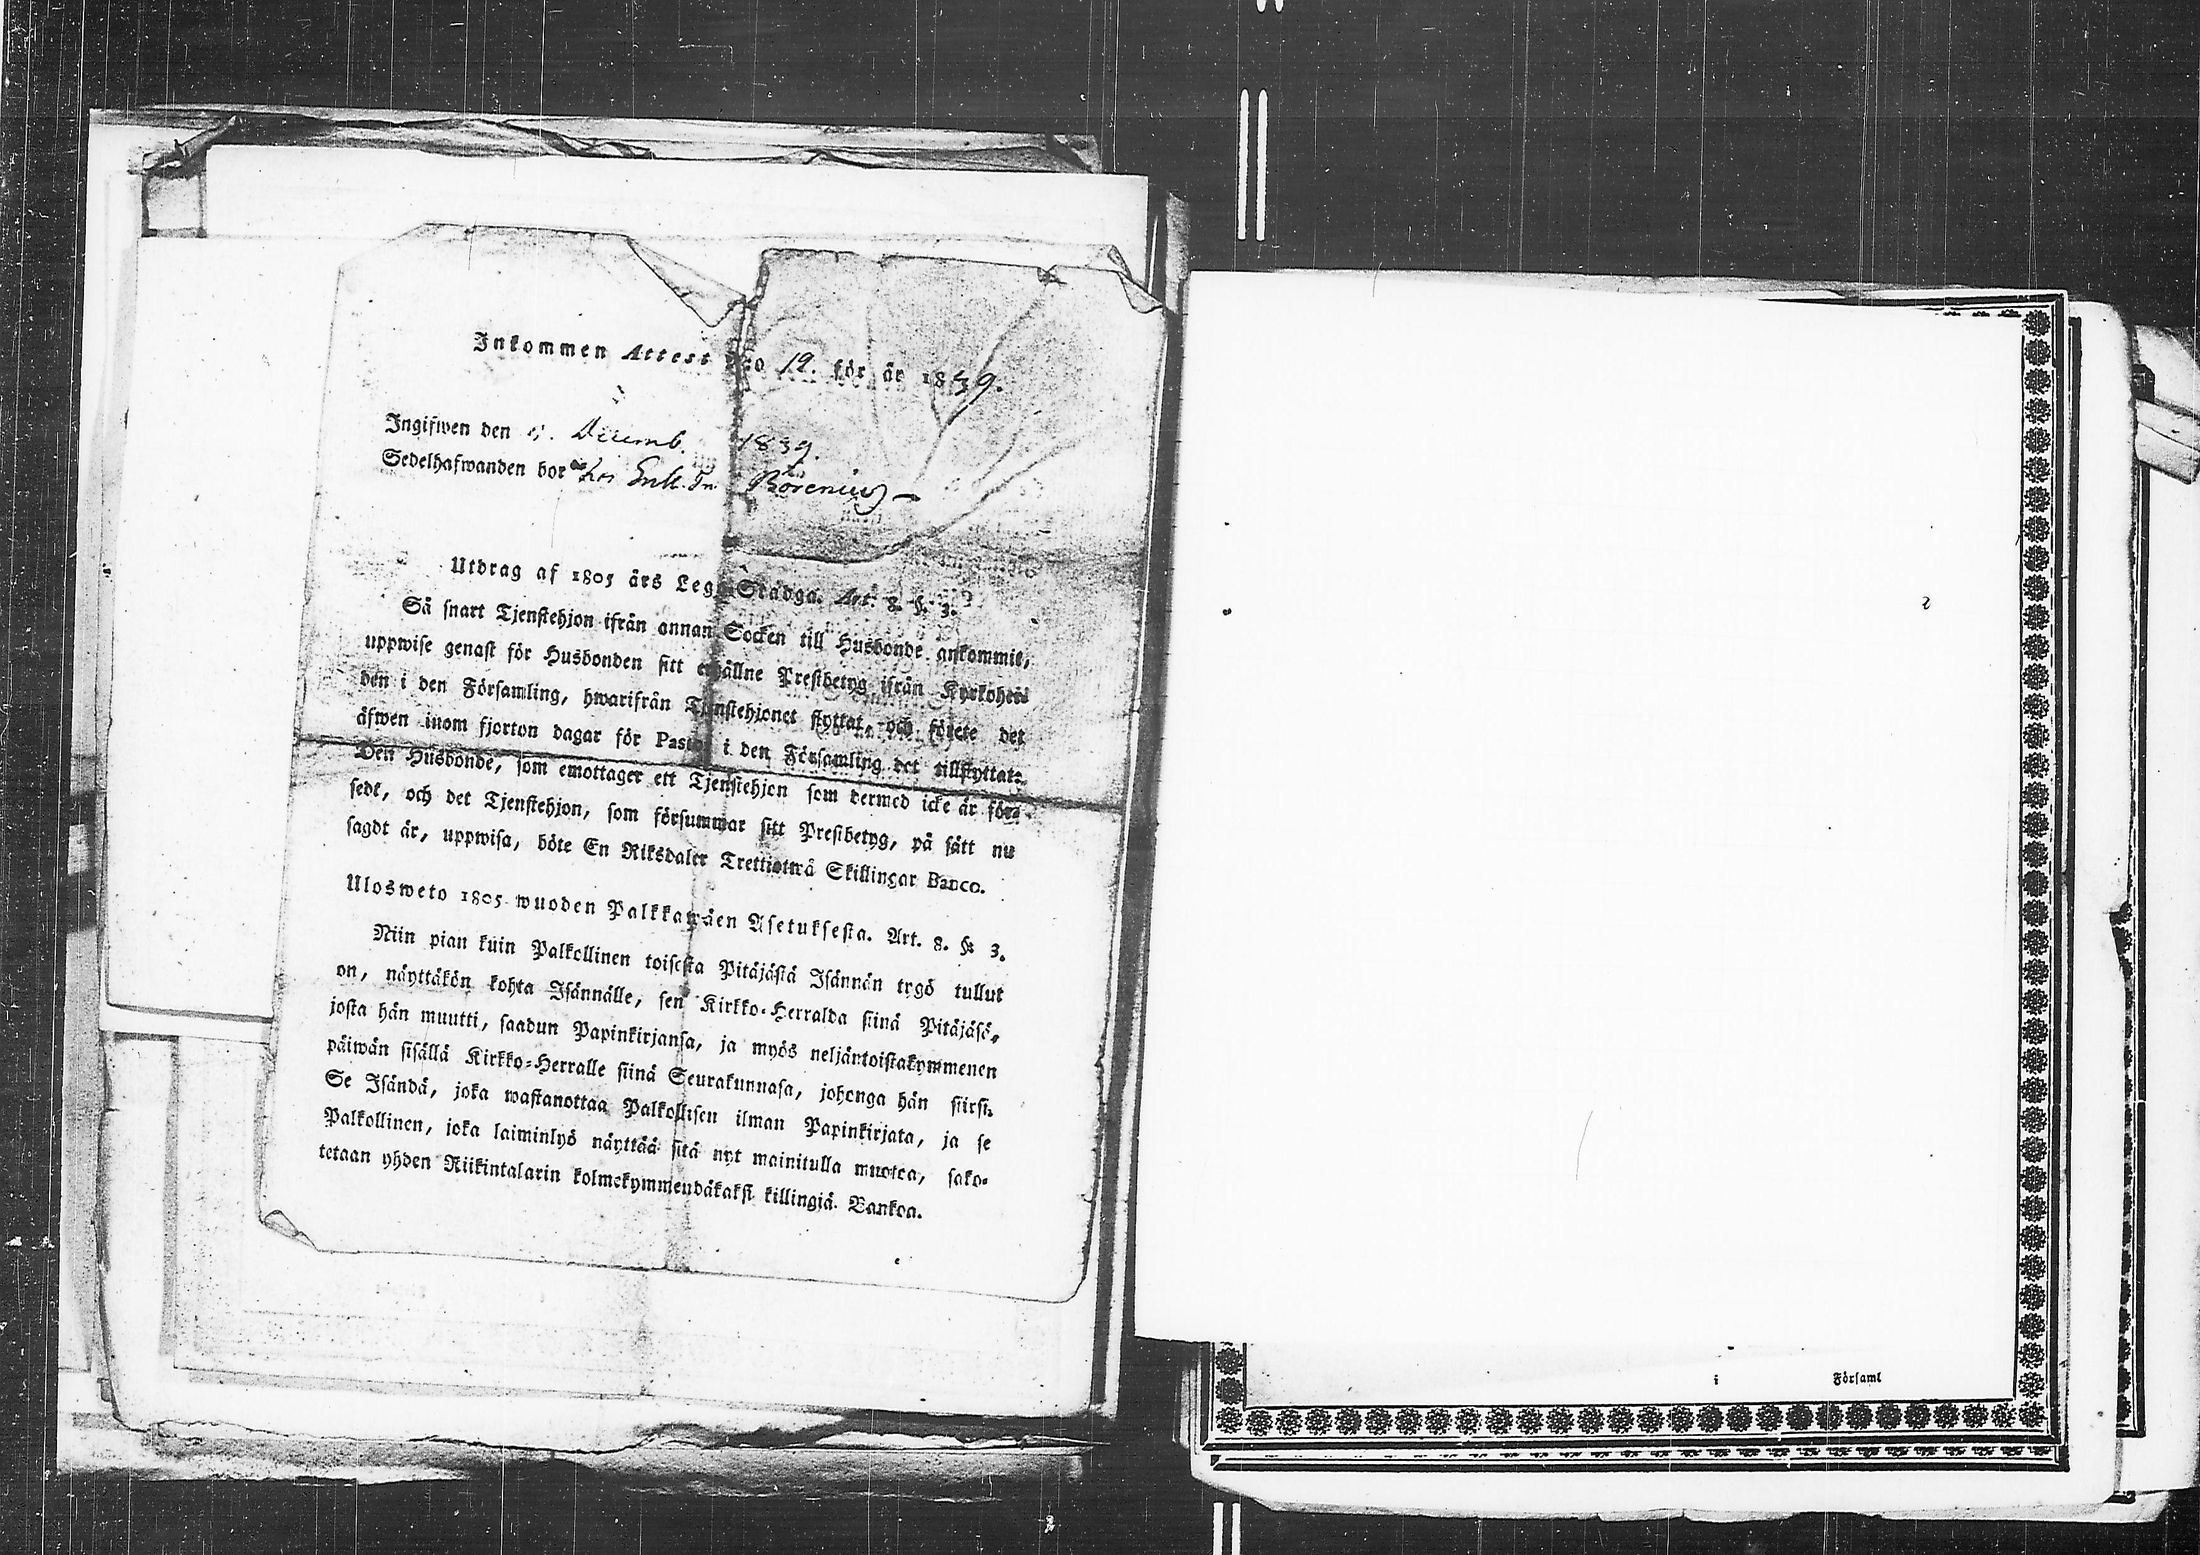 Inkommen Attest N:o 19. för år 1839.
Ingifwen den 4. Decemb. 1839.
Sedelhafwanden bor hos Enk. Fru Borenius
Utdrag af 1805 års Lego-Stadga. Art. 8. §. 3.
Så snart Tjenstehjon ifrån annan Socken till Husbonde ankommit,
uppwise genast för Husbonden sitt erhållne Prestbetyg ifrån Kyrkoher-
den i den Församling, hwarifrån Tjenstehjonet flyttat, och förete det
äfwen inom fjorton dagar för Pastor i den Församling det tillflyttat.
Den Husbonde, som emottager ett Tjenstehjon som dermed icke är för-
sedt, och det Tjenstehjon, som försummar sitt Prestbetyg, på sätt nu
sagdt är, uppwisa, böte En Riksdaler Trettiotwå Skillingar Banco.
Ulosweto 1805 wuoden Palkkawäen Asetuksesta. Art. 8. § 3.
Niin pian kuin Palkollinen toisesta Pitäjästä Isännän tygö tullut
on, näyttäkön kohta Isännälle, sen Kirkko-Herralda siinä Pitäjäsä,
josta hän muutti, saadun Papinkirjansa, ja myös neljäntoistakymmenen
päiwän sisällä Kirkko-Herralle siinä Seurakunnasa, johonga hän siirsi.
Se Isändä, joka wastanottaa Palkollisen ilman Papinkirjata, ja se
Palkollinen, joka laiminlyö näyttää sitä nyt mainitulla muotoa, sako-
tetaan yhden Riikintalarin kolmekymmendäkaksi killingiä Bankoa.
i Församl